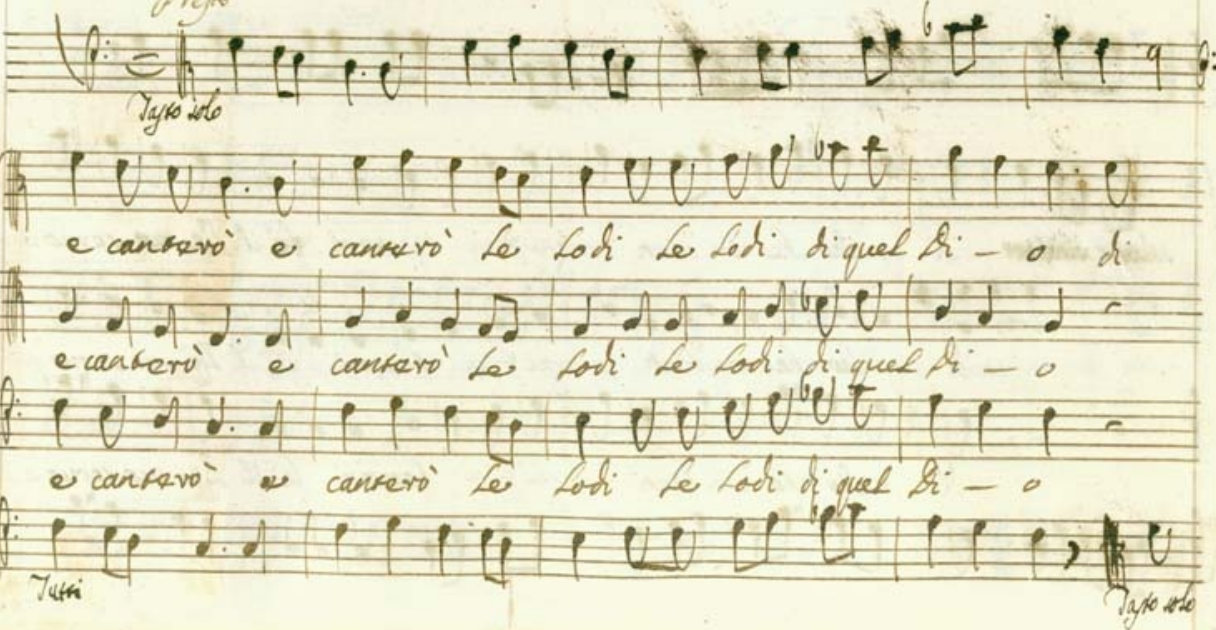 Presto
Tasto solo
e canterò e canterò le lodi le lodi di quel Di - o di
e canterò e canterò le lodi le lodi di quel Di - o
e canterò e canterò le lodi le lodi di quel Di - o
Tutti
Tasto solo